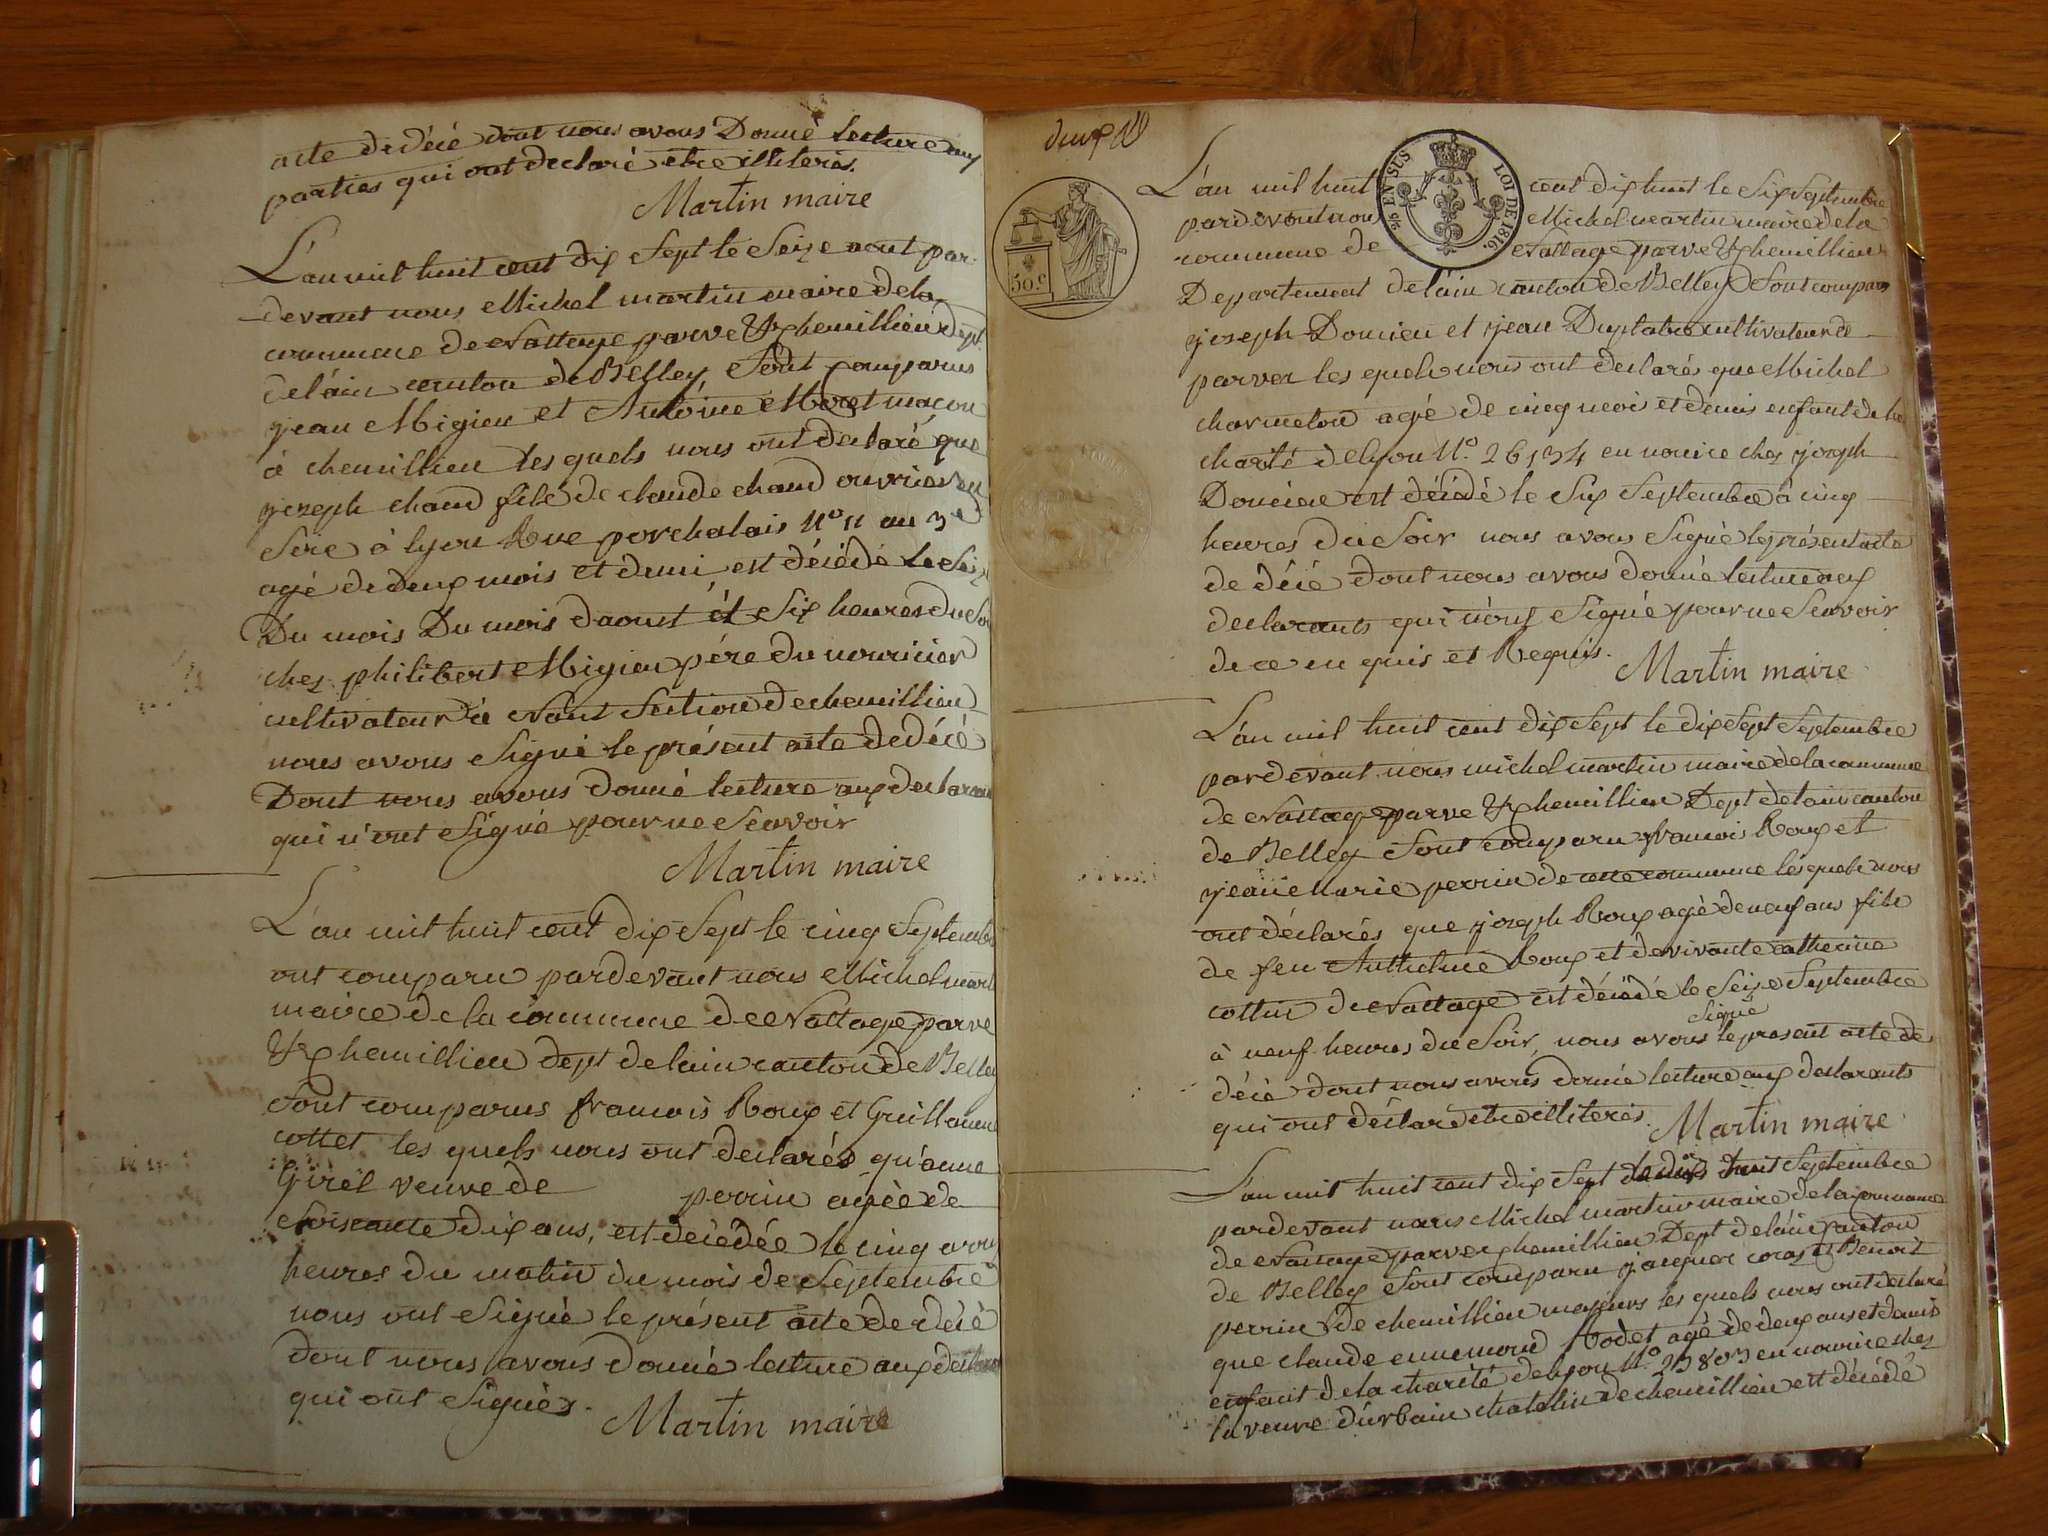 acte de décé dont nous avons Donné lecture aux
parties qui ont declaré etre illiterés.
Martin maire
L'an mil huit cent dix Sept le Seize aout par
devant nous Michel martin maire de la
commune de Nattage parve & chemillieu dept
de l'ain canton de Belley Sont comparus
jean Migieu et Antoine Moret maçon
à chemillieu les quels nous ont declaré que
joseph chaud fils de claude chaud ouvrier en
Soie à lyon Rue porchalais N° 11 au 3e
agé de deux mois et demi est décédé le Seize
Du mois Du mois daoust et Six heures du Soir
chez philibert Migieu père du nouricier
cultivateur à Nant Section de chemillieu
nous avons Signé le présent acte de décé
Dont nous avons donné lecture aux declarans
qui n'ont Signé pour ne Scavoir
Martin maire
L'an mil huit cent dix Sept le cinq Septembre
ont comparu pardevant nous Michel mart
maire de la commune de Nattage parve
& chemillieu dept de lain canton de Belley
Sont comparus francois Roux et Guillaume
cottet les quels nous ont declarés qu'anne
Girel veuve de perrin agée de
Soixante dix ans, est décédée le cinq a onze
heures du matin du mois de Septembre
nous ont Signé le présent acte de décé
dont nous avons donné lecture aux declarans
qui ont Signés.
Martin maire
50.c
EN SUS LOI DE 1816.
L'an mil huit cent dix huit le Six Septembre
pardevant nous Michel martin maire de la
commune de Nattage parve & chemillieu
Departement de l'ain canton de Belley Sont comparus
joseph Domieu et jean Duplatre cultivateur de
parves les quels nous ont declarés que Michel
charmeton agé de cinq mois et demi enfant de la
charité de lyon N° 26134 en nourice chez joseph
est décédé le Six Septembre à cinq
heures du Soir nous avons Signé le présent acte
de décé dont nous avons donné lecture aux
declarants qui n'ont Signé pour ne Scavoir
de ce en quis et Requis.
Martin maire
L'an mil huit cent dix Sept le dix Sept Septembre
pardevant nous michel martin maire de la commune
de Nattage parve & chemillieu Dept de lain canton
de Belley Sont comparu francois Roux et
jean Marie perrin de cette commune les quels nous
ont déclarés que joseph Roux agé de neuf ans fils
de feu Anthelme Roux et de vivante catherine
cottin de Nattage est décédé le Seize Septembre
à neuf heures du Soir, nous avons Signé le present acte de
décé dont nous avons donné lecture aux declarants
qui ont déclaré etre illiterés.
Martin maire
L'an mil huit cent dix Sept le dix huit Septembre
pardevant nous Michel martin maire de la commune
de Nattage parves chemillieu Dept de l'ain canton
de Belley Sont comparu jacques coraz et Benoit
perrin de chemillieu majeurs les quels nous ont declaré
que claude ennemond Rodet agé de deux ans et demi
enfant de la charité de lyon N° 23803 en nourice chez
la veuve d'urbain chatelin de chemillieu est décédé